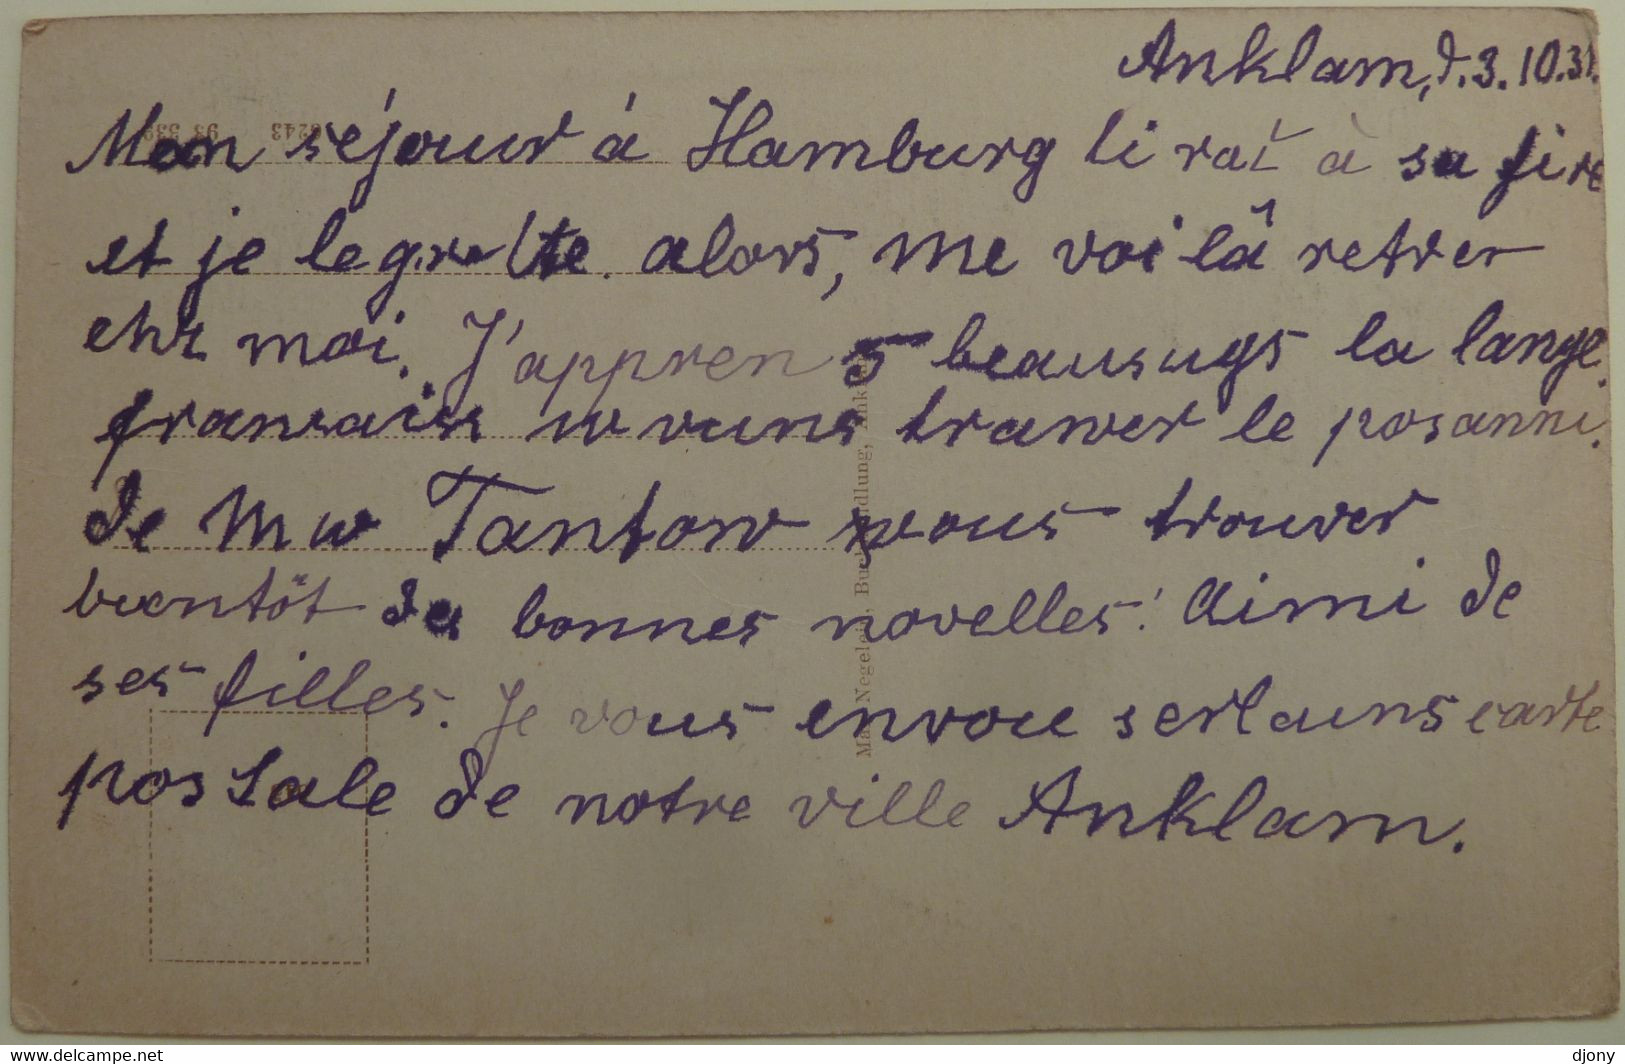 Anklam, d. 3. 10. 31.
Mon séjour à Hamburg ti rat à sa fire
et je le grette. alors, me voilâ retrer
chr moi. J'appren 5 beausugs la lange
fransaiss trawer le posanni.
de Mw Tantow vous trouver
bientôt des bonnes novelles! Aimi de
ses filles. Je vous envoie serlauns carte
postale de notre ville Anklam.
6243 93 339
Max Negelein, Buchhandlung, Anklam
www.delcampe.net
djony